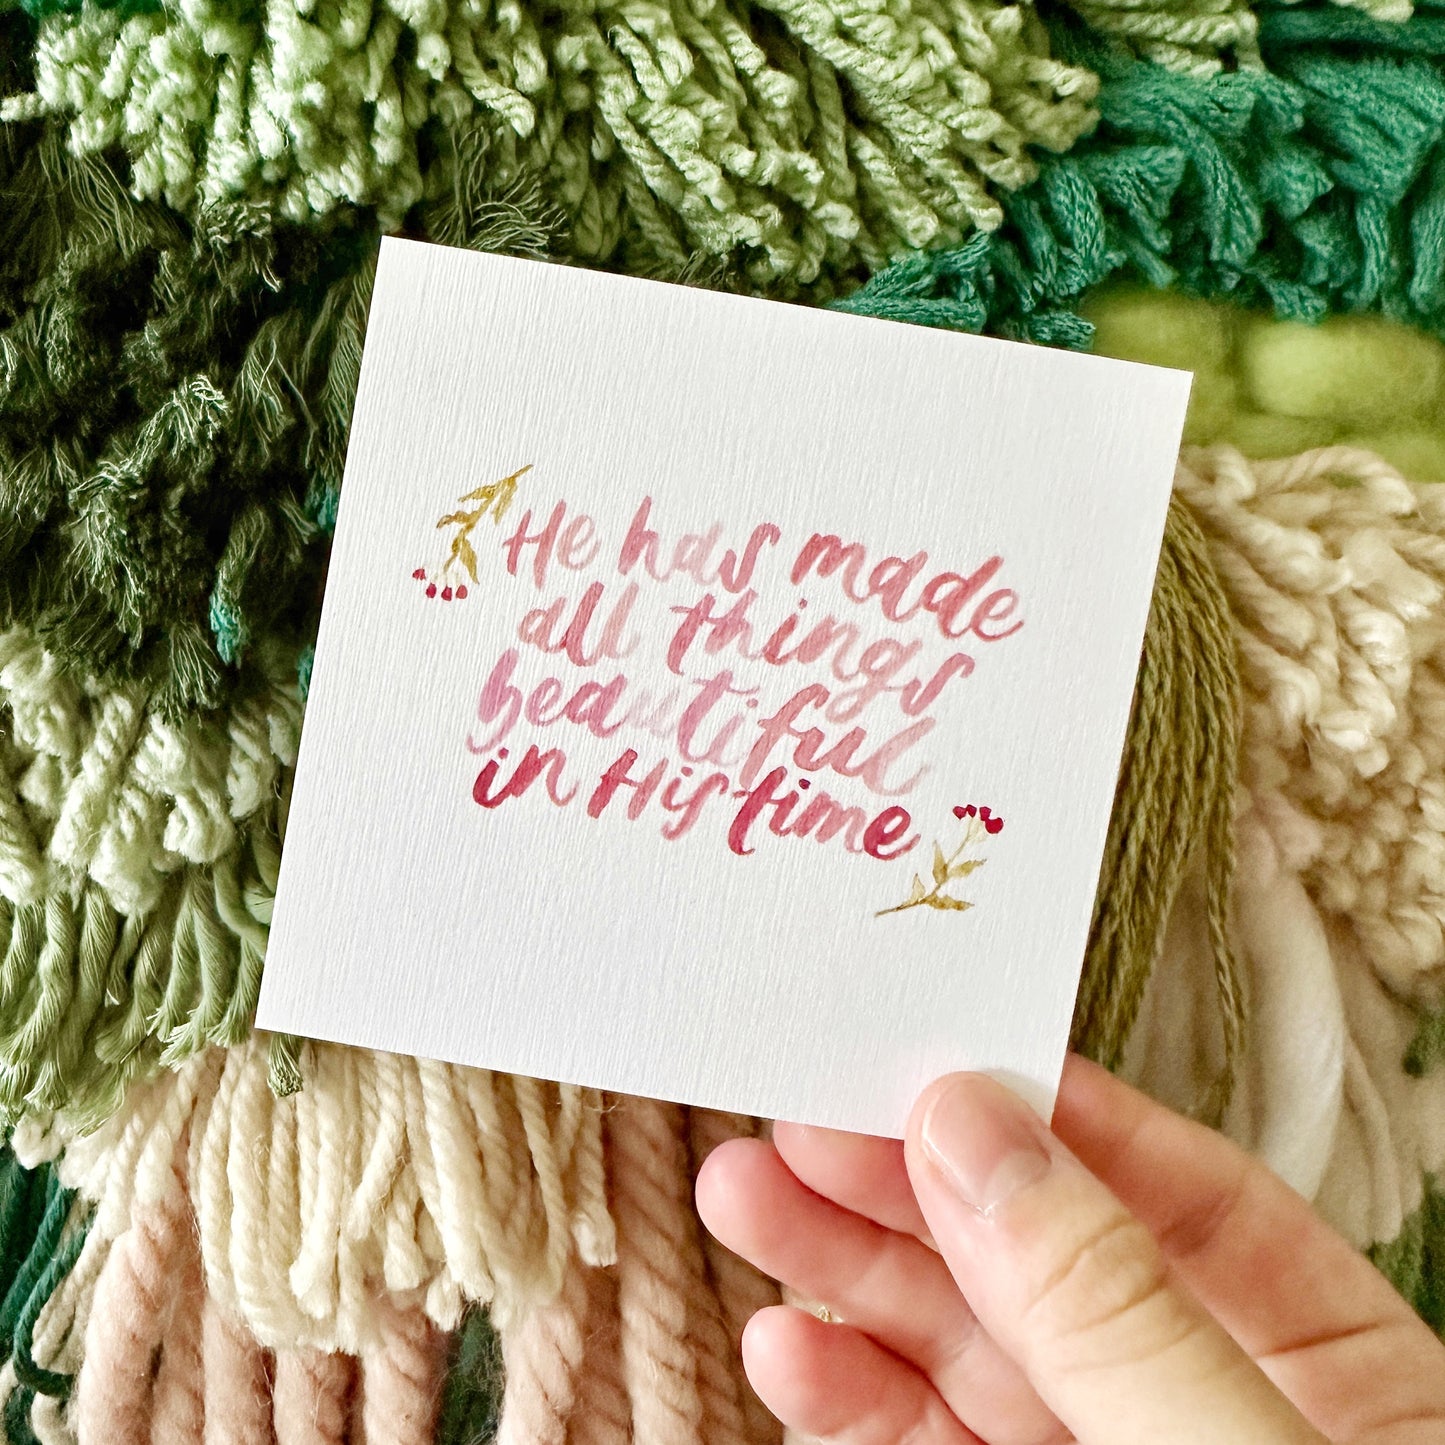 He has made
all things
beautiful
in His time